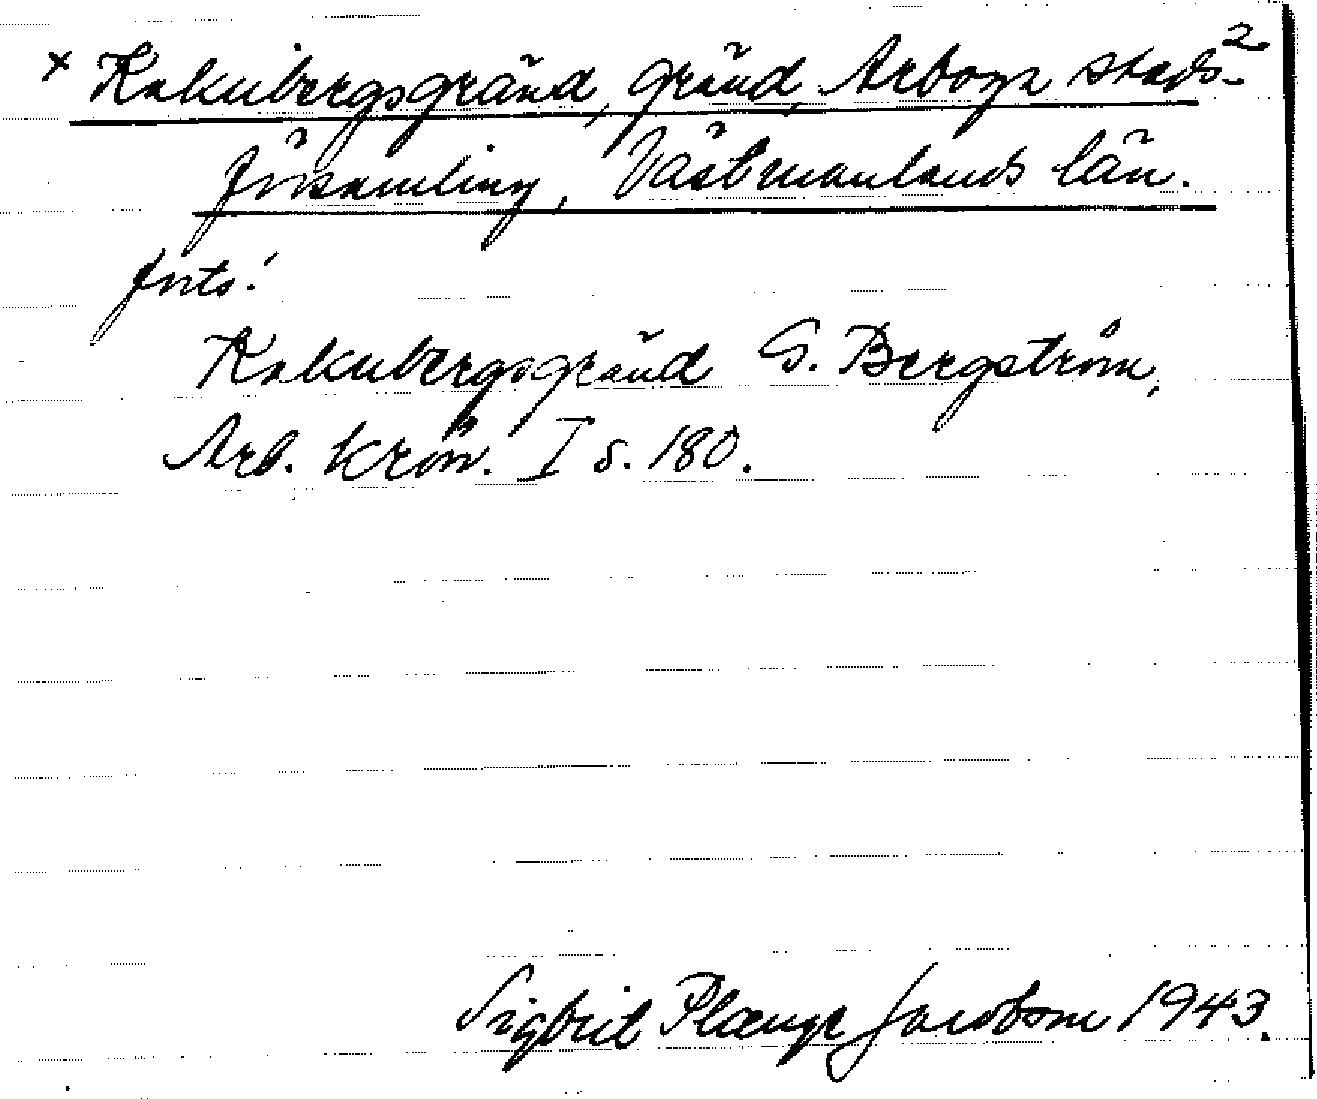 2
x Kakubergsgränd, gränd, Arboga stads-
församling, Västmanlands län.
forts.
Kakubergsgränd G. Bergström,
Arb. Krön. I s. 180.
Sigbrit Plænge Jacobson 1943.